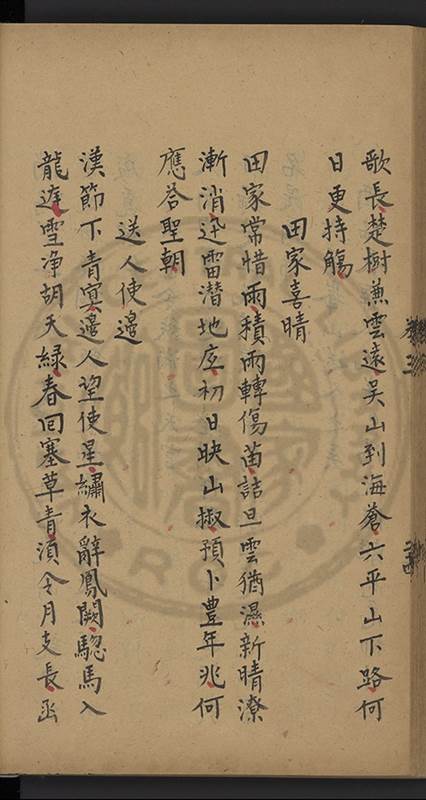 歌長楚樹兼雲遠吳山到海蒼六平山下路何
日更持觴
田家喜晴
田家常惜雨積雨轉傷苗詰旦雲猶濕新晴潦
漸消迅雷潜地底初日映山椒預卜豊年兆何
應答聖朝
送人使邊
漢節下青冥邊人望使星繡衣辭鳳闕驄馬入
龍庭雪浄胡天綠春回塞草青須令月支長函